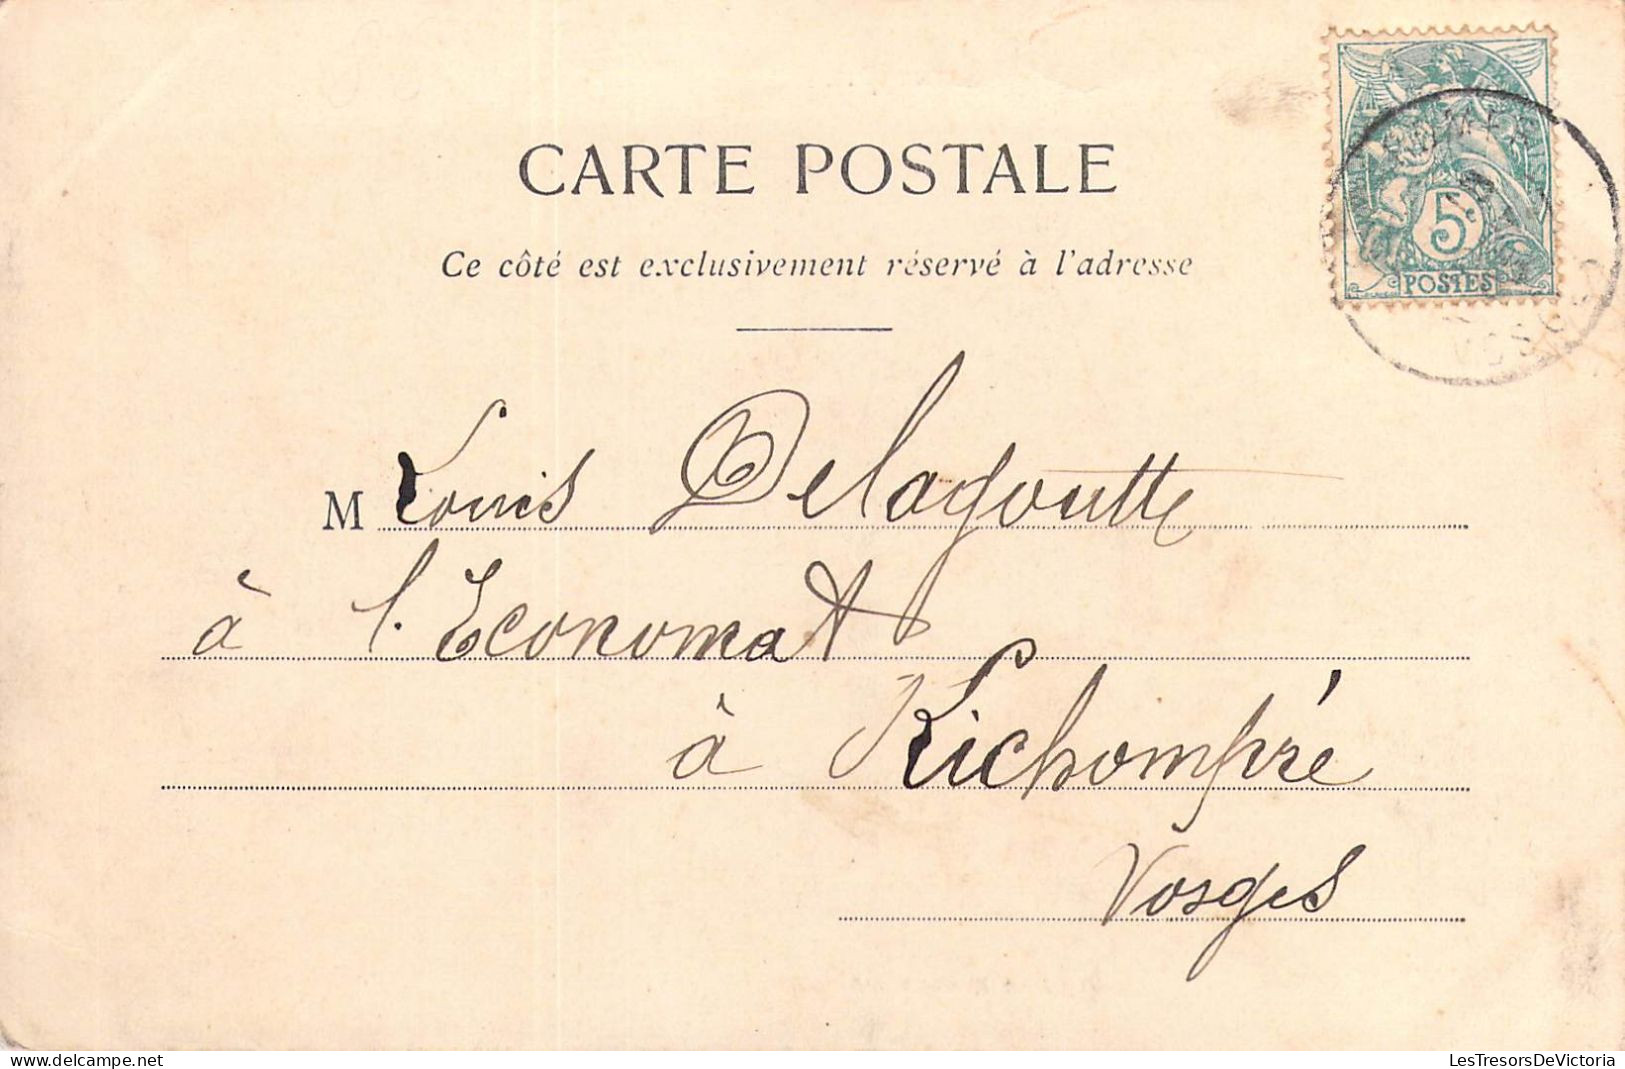 CARTE POSTALE
Ce côté est exclusivement réservé à l'adresse
5
POSTES
VOSGES
M Louis Delagoutte
à l'Economat
à Kichompré
Vosges
LesTresorsDeVictoria
delcampe.net